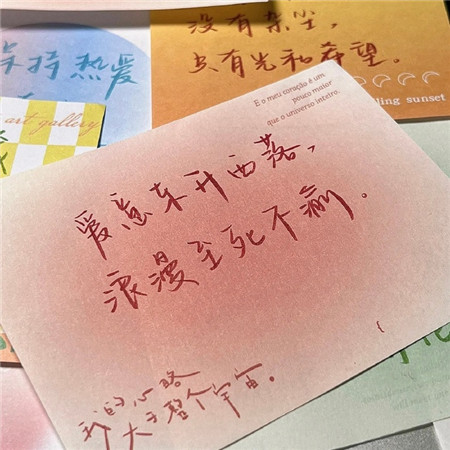 没有杂尘，
保持热爱
只有光和希望。
ling sunset
art gallery
E o meu coração é um
pouco maior
que o universo inteiro.
爱意东升西落，
浪漫至死不渝。
我的心略
大于整个宇宙。